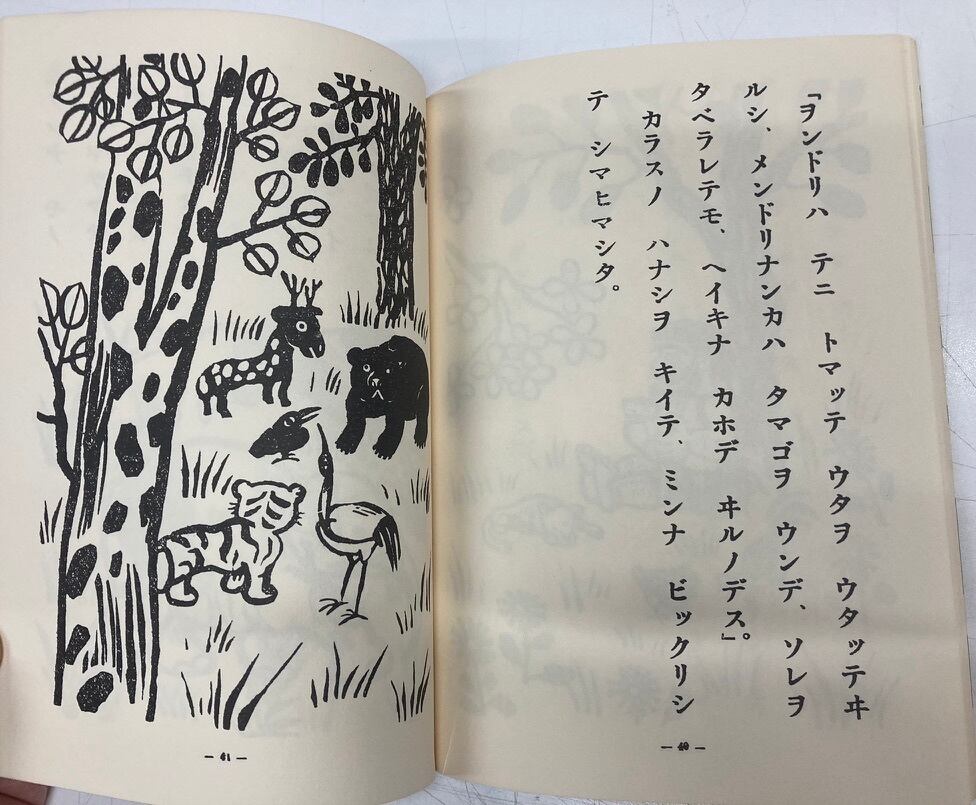 「ヲンドリハ テニ トマッテ ウタヲ ウタッテヰ
ルシ、メンドリナンカハ タマゴヲ ウンデ、ソレヲ
タベラレテモ、ヘイキナ カホデ ヰルノデス」。
カラスノ ハナシヲ キイテ、ミンナ ビックリシ
テ シマヒマシタ。
— 40 —
— 41 —